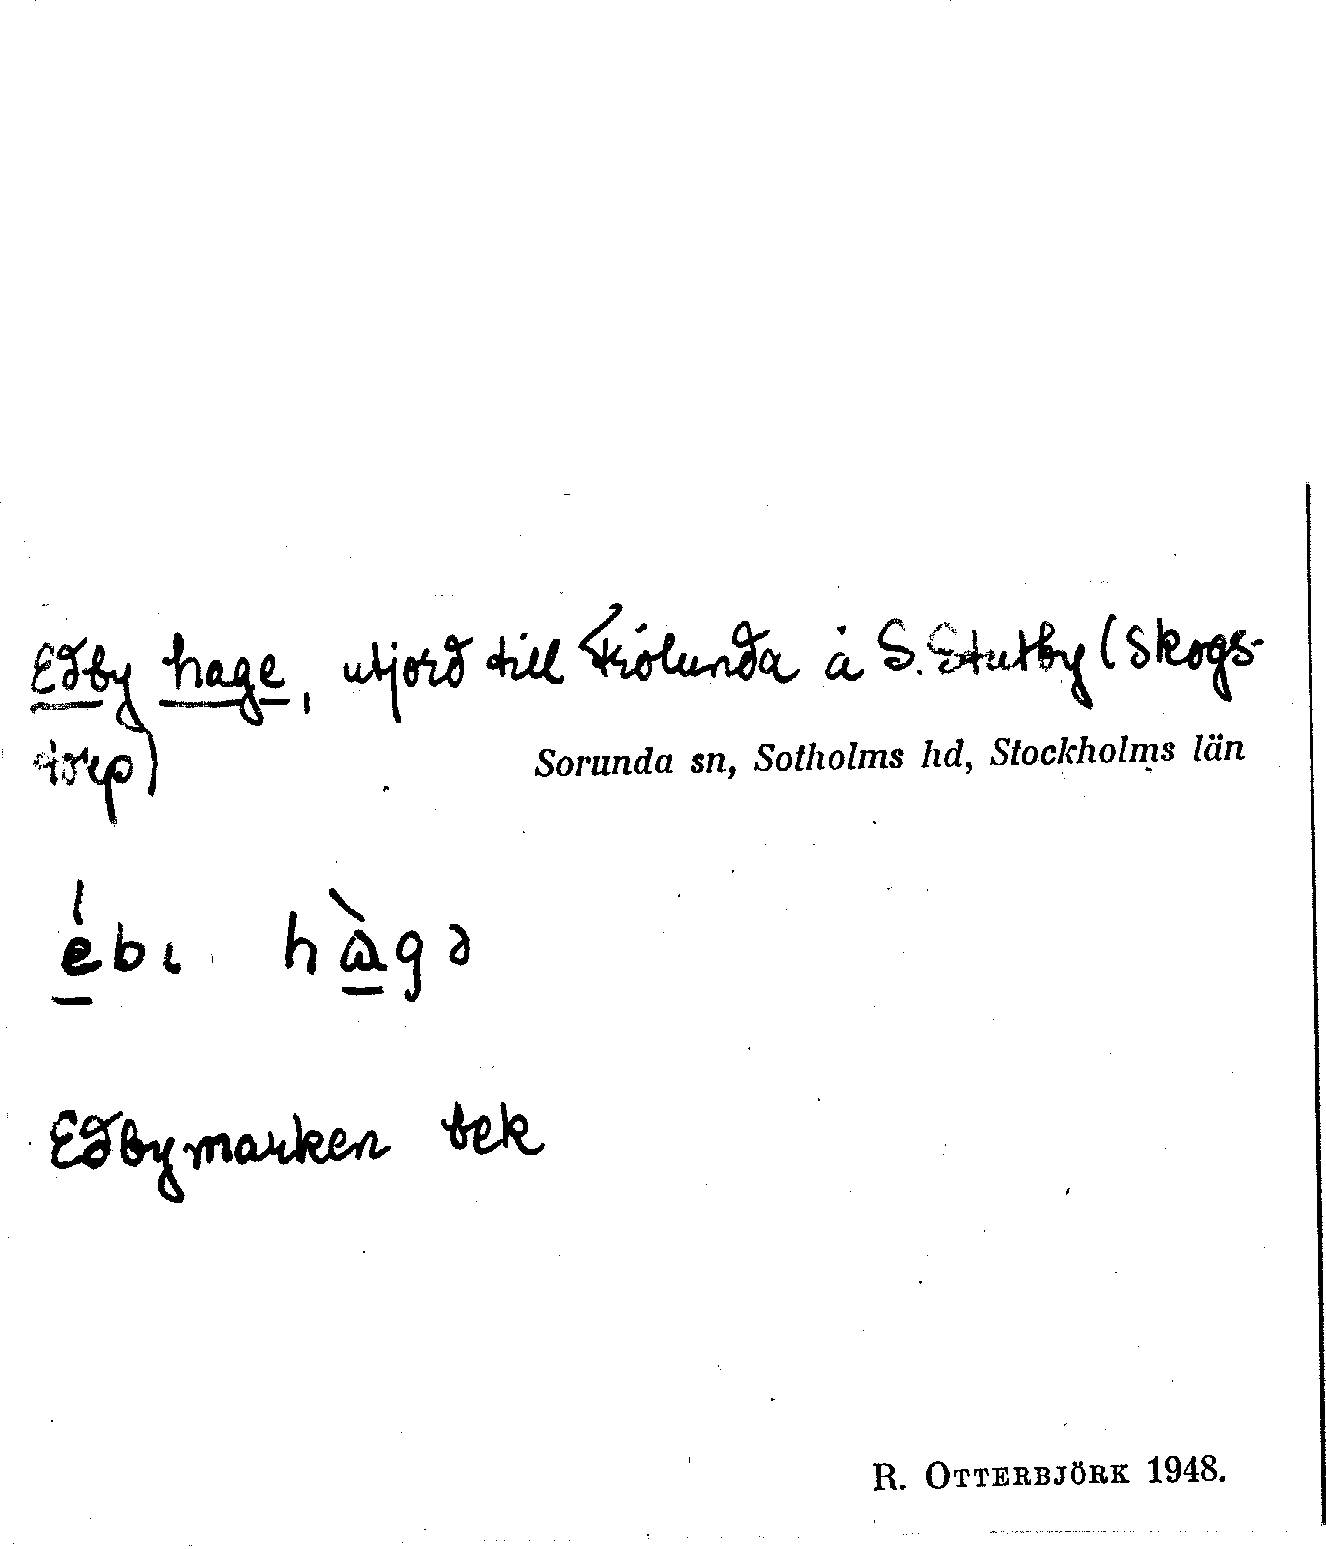 Edby hage, utjord till Fiolunda å S. Stutby (Skogs-
torp)
Sorunda sn, Sotholms hd, Stockholms län
ébı hàgə
Edbymarken bek
R. OTTERBJÖRK 1948.